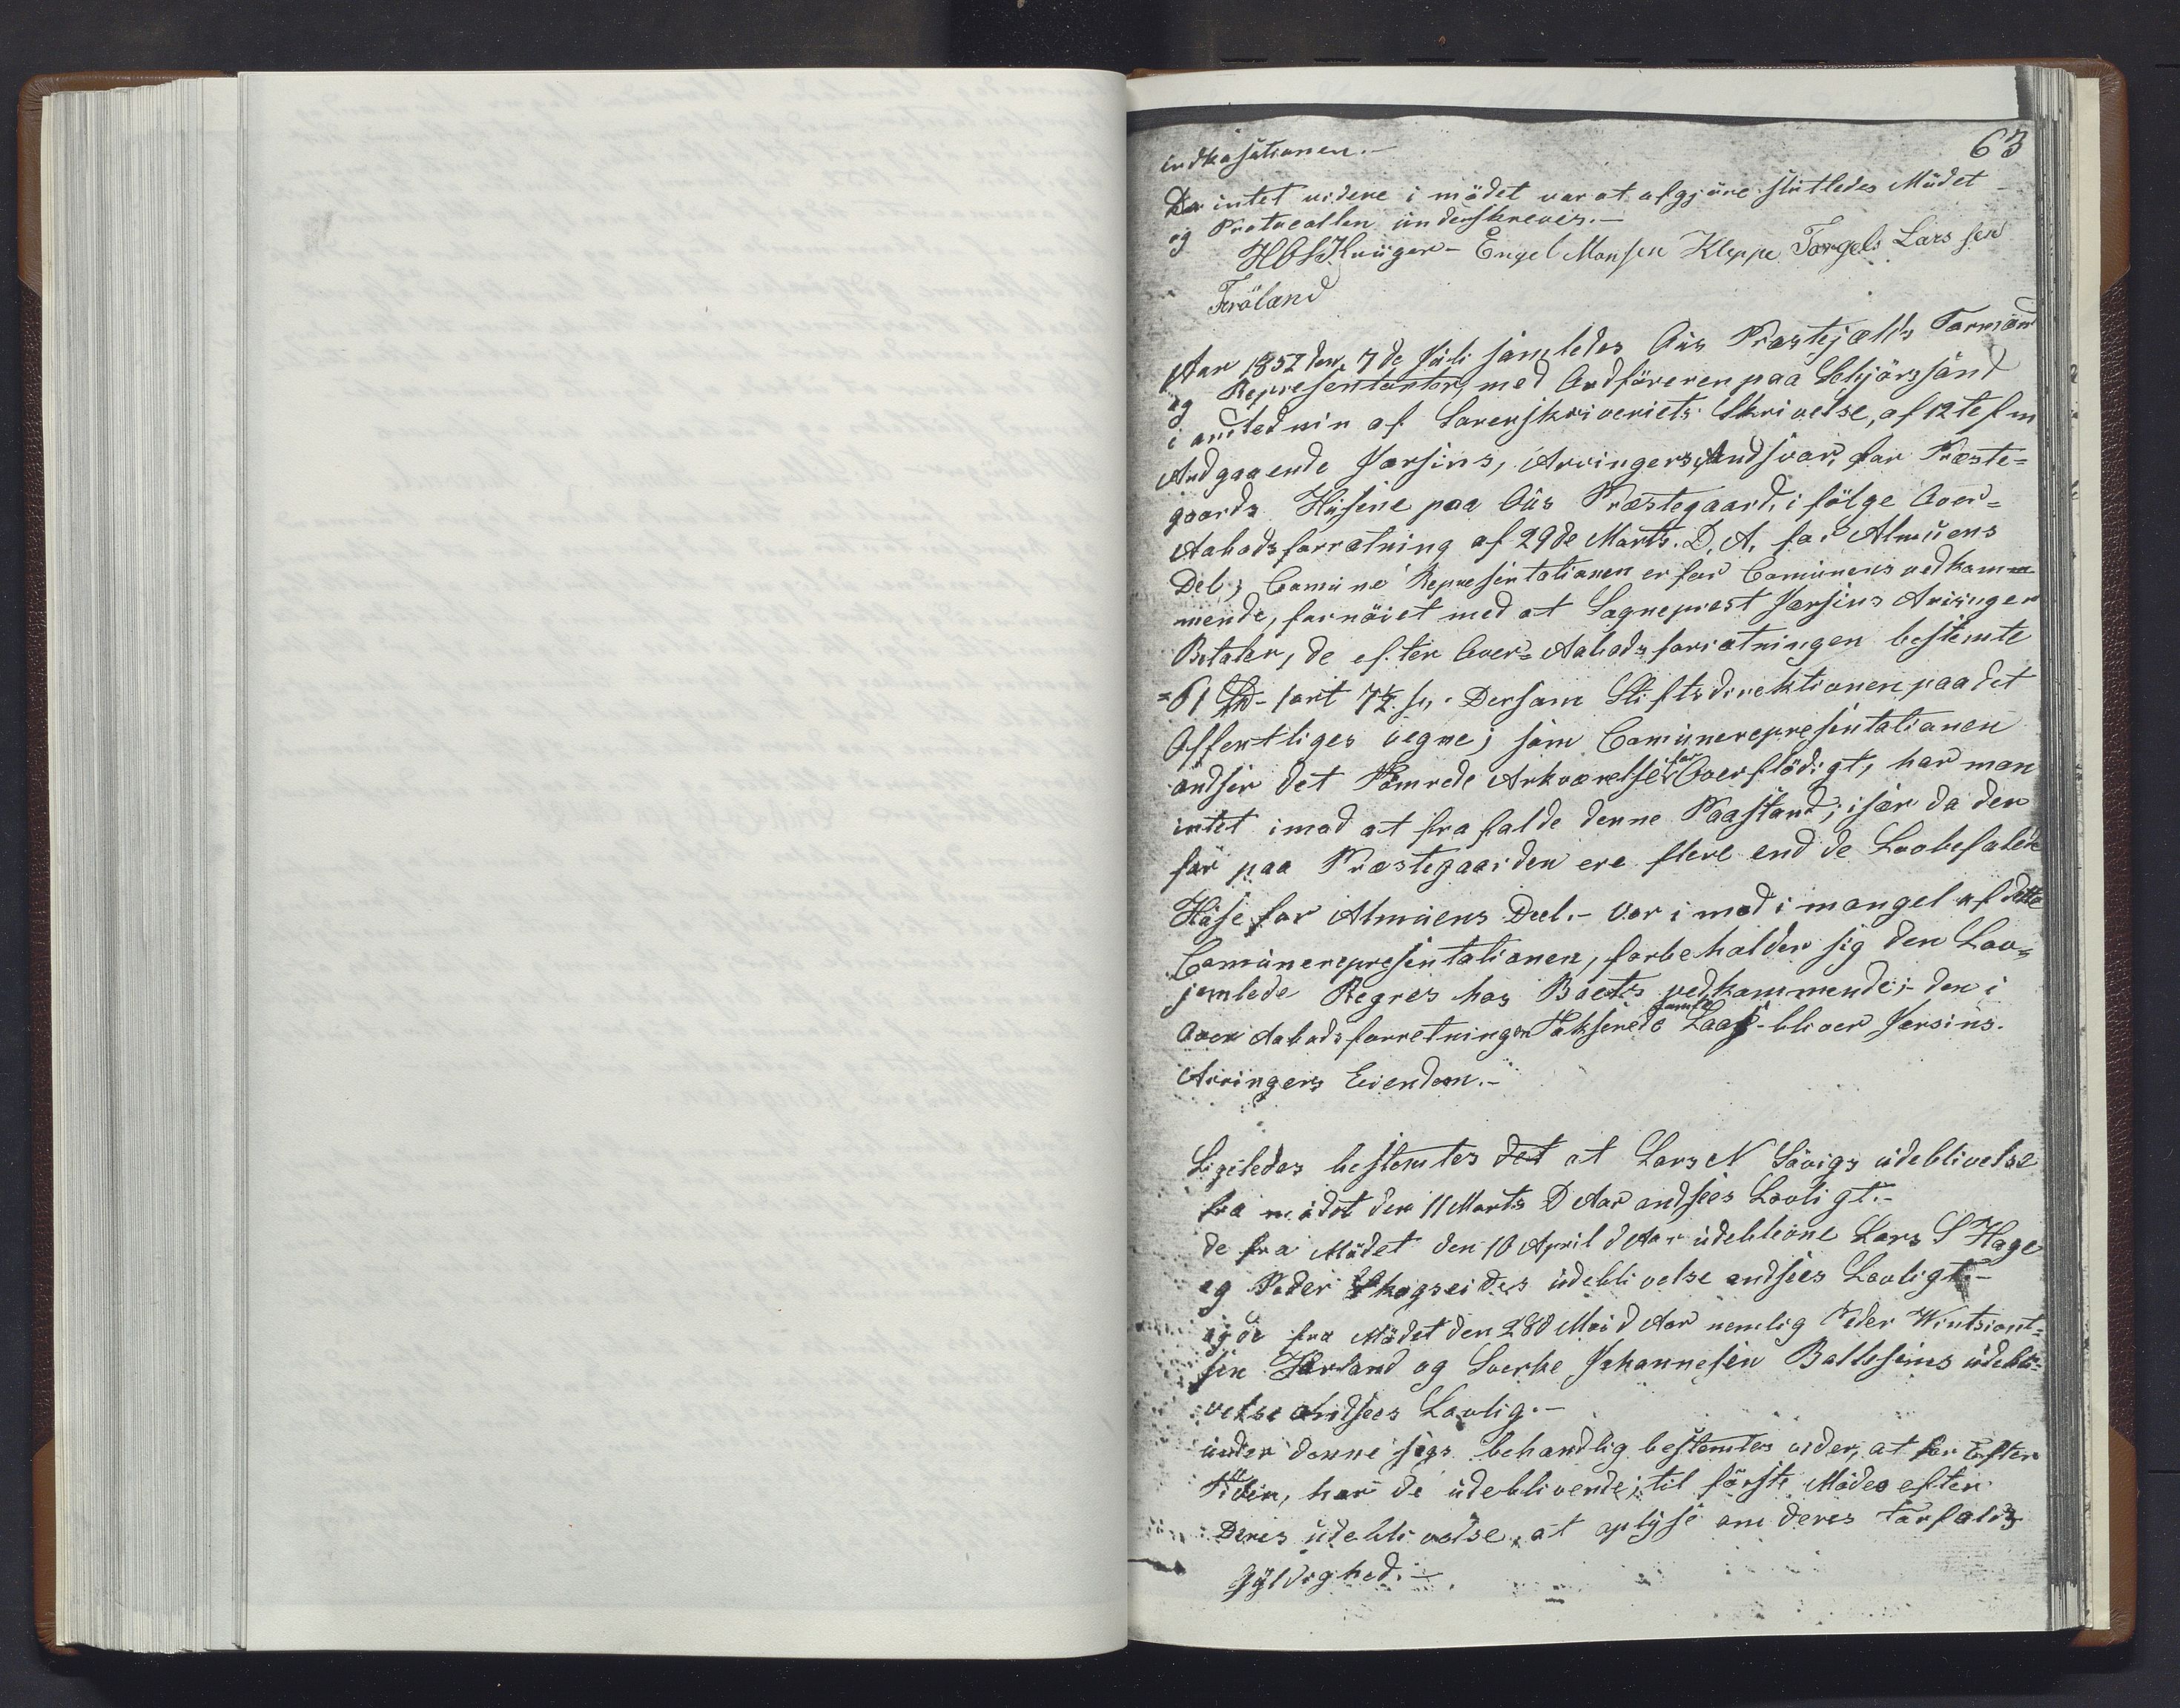 63
indkasationen.-
Da intet videre i mödet var at afgjöre sluttedes Mödet
og Protocollen underskreves.-
Engel Monsen Kleppe Torgels Lars sen
Fröland
Aar 1852 den 7de Juli samledes Ous Præstejælds Formæn
og Representanter, med Ordföreren paa Schjörsand
i andlednin af Sorenskriveriets Skrivelse, af 12te f m
Andgaaende Jersins, Arvingers Andsvar, for Præste=
goards Husene paa Ous Præstegaard, i fölge Over=
Aabodsforratning af 29de Marts. D. A. for Almuens
Del; Comune Representationen er for Comunens vedkomm
mende, fornöiet med at Sogneprest Jersins Arvinger
Betaler, de efter Over= Aabods foriatningen bestemte
=61 Sd- fort 7½ s,. Dersom Stiftsdirektionen paa det
Offentliges vegne; som Comunerepresentationen
andser det Tömrede Arkværelse for Overflödigt, har man
intet imod at frafalde denne Paastand; især da der
för paa Præstegaarden ere flere end de Lovbefalede
Huse for Almuens Deel.- Vor i mod i mangel af dette
Comunerepresentationen, forbeholder sig den Lov=
jemlede Regres hos Boets vedkommende; den i
Over Aabodsforretningen Takserede gamle Laas- bliver Jersins.
Arvingers Eiendom.-
Ligeledes bestemtes det at Lars N Sövigs udeblivelse
fra mödet den 11 Marts D Aar andsees Lovligt.-
de fra Mödet den 10 April d Aar udeblevne Lars S Hage
og Peder Skogseides udeblivelse andsees Lovligt.-
og de fra Mödet den 28d Mai d Aar nemlig Peder
sen Hovland og Sverke Johannesen Baltesens udebli=
velse andsees Lovlig.-
under denne sags behandlig bestemtes vider, at for Efter
Tiden, har de udeblivende; til förste Mödeo efter
Deres udeblivelse, at oplyse om deres Forfalds
Gyldighed.-